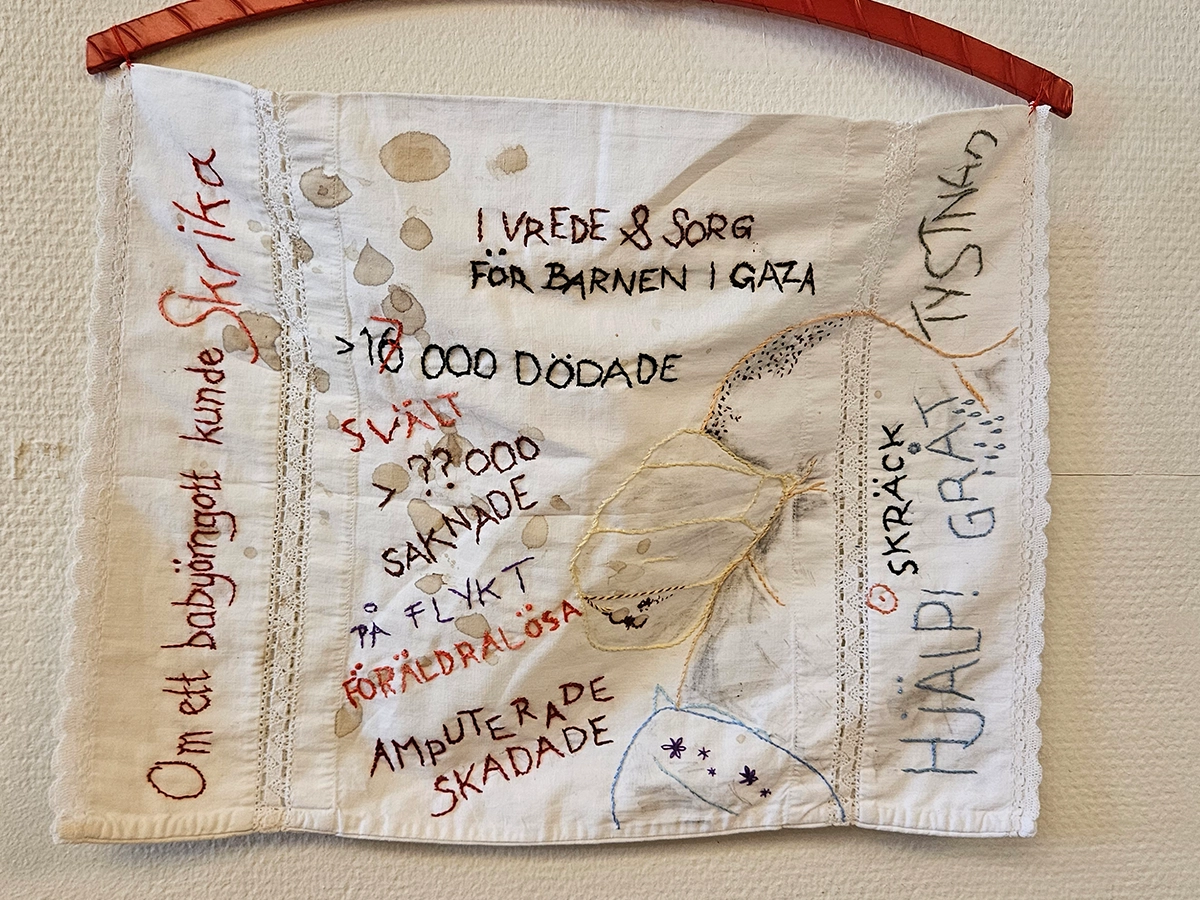 Om ett babyörngott kunde Skrika
I VREDE & SORG
FÖR BARNEN I GAZA
>17 000 DÖDADE
SVÄLT
> ?? 000
SAKNADE
PÅ FLYKT
FÖRÄLDRALÖSA
AMPUTERADE
SKADADE
TYSTNAD
SKRÄCK
GRÅT
HJÄLP!